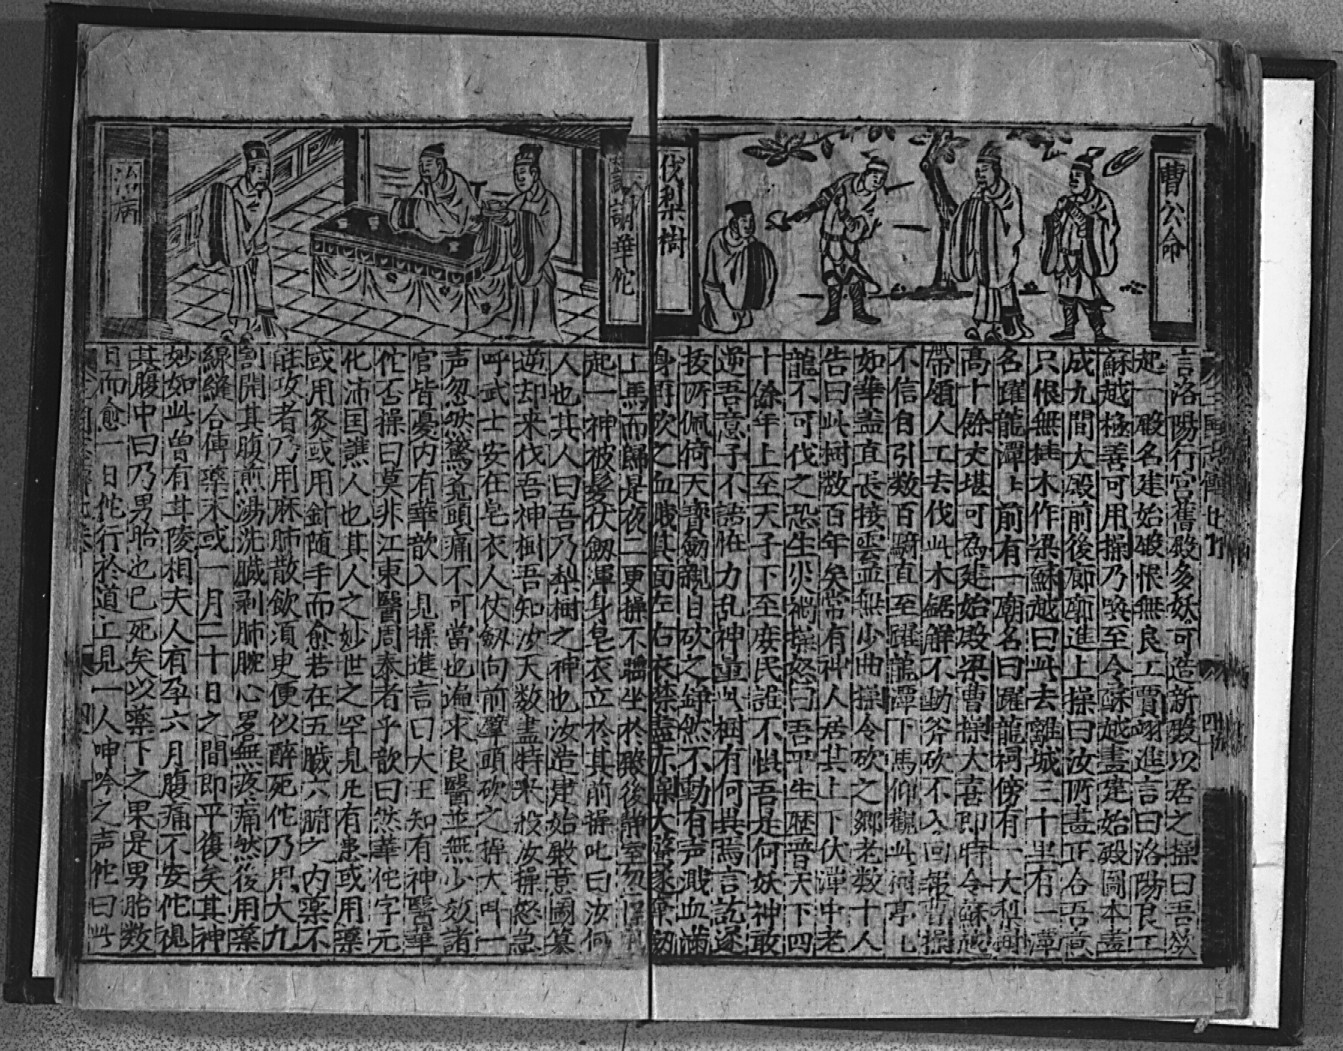 曹公命
伐梨樹
言洛陽行宮舊殿多妖可造新殿以居之操曰吾欲
起一殿名建始殿恨無良工賈詡進言曰洛陽良工
蘇越極善可用操乃喚至令蘇越畫建始殿圖本畫
成九間大殿前後廊廡進上操曰汝所畫正合吾意
只恨無梁木作梁蘇越曰此去離城三十里有一潭
名躍龍潭上前有一廟名曰躍龍祠傍有一大梨樹
高十餘丈堪可為建始殿梁曹操大喜即時令蘇越
帶領人工去伐此木鋸觧不動斧砍不入回報曹操
不信自引数百騎直至躍龍潭下馬仰觀此樹亭亭
如華盖直長接雲並無少曲操令砍之鄉老数十人
告曰此樹数百年矣常有神人居其上下伏潭中老
龍不可伐之恐生災禍操怒曰吾平生歷普天下四
十餘年上至天子下至庶民誰不惧吾是何妖神敢
逆吾意子不語怪力乱神量此樹有何異焉言訖遂
抜所佩倚天寶劒親自砍之錚然不動有声濺血滿
身再砍之血濺其面左右衣襟盡赤操大驚遂棄劒
請華佗
治病
上馬而歸是夜二更操不睡坐於殿後靜室忽
起一神被髮伏劒渾身皂衣立於其前操叱曰汝何
人也其人曰吾乃梨樹之神也汝造建始殿意圖篡
逆却来伐吾神樹吾知汝天数盡特来殺汝操怒急
呼武士安在皂衣人仗劒向前劈頭砍之操大叫一
声忽然驚覺頭痛不可當也遍求良醫並無少效諸
官皆憂内有華歆入見操進言曰大王知有神醫華
佗否操曰莫非江東醫周泰者乎歆曰然華佗字元
化沛国譙人也其人之妙世之罕見凡有患或用藥
或用灸或用針随手而愈若在五臟六腑之内藥不
能攻者乃用麻肺散飲湏臾便似醉死佗乃用大九
割開其腹煎湯洗臟剥肺腕心畧無疼痛然後用藥
線縫合傳藥末或一月二十日之間即平復矣其神
妙如此曾有甘陵相夫人有孕六月腹痛不安佗視
其腹中曰乃男胎也已死矣以藥下之果是男胎数
日而愈一日佗行於道上見一人呻吟之声佗曰此